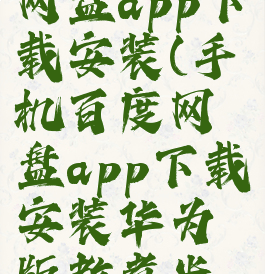 网盘app下
载安装(手
机百度网
盘app下载
安装华为
版教程